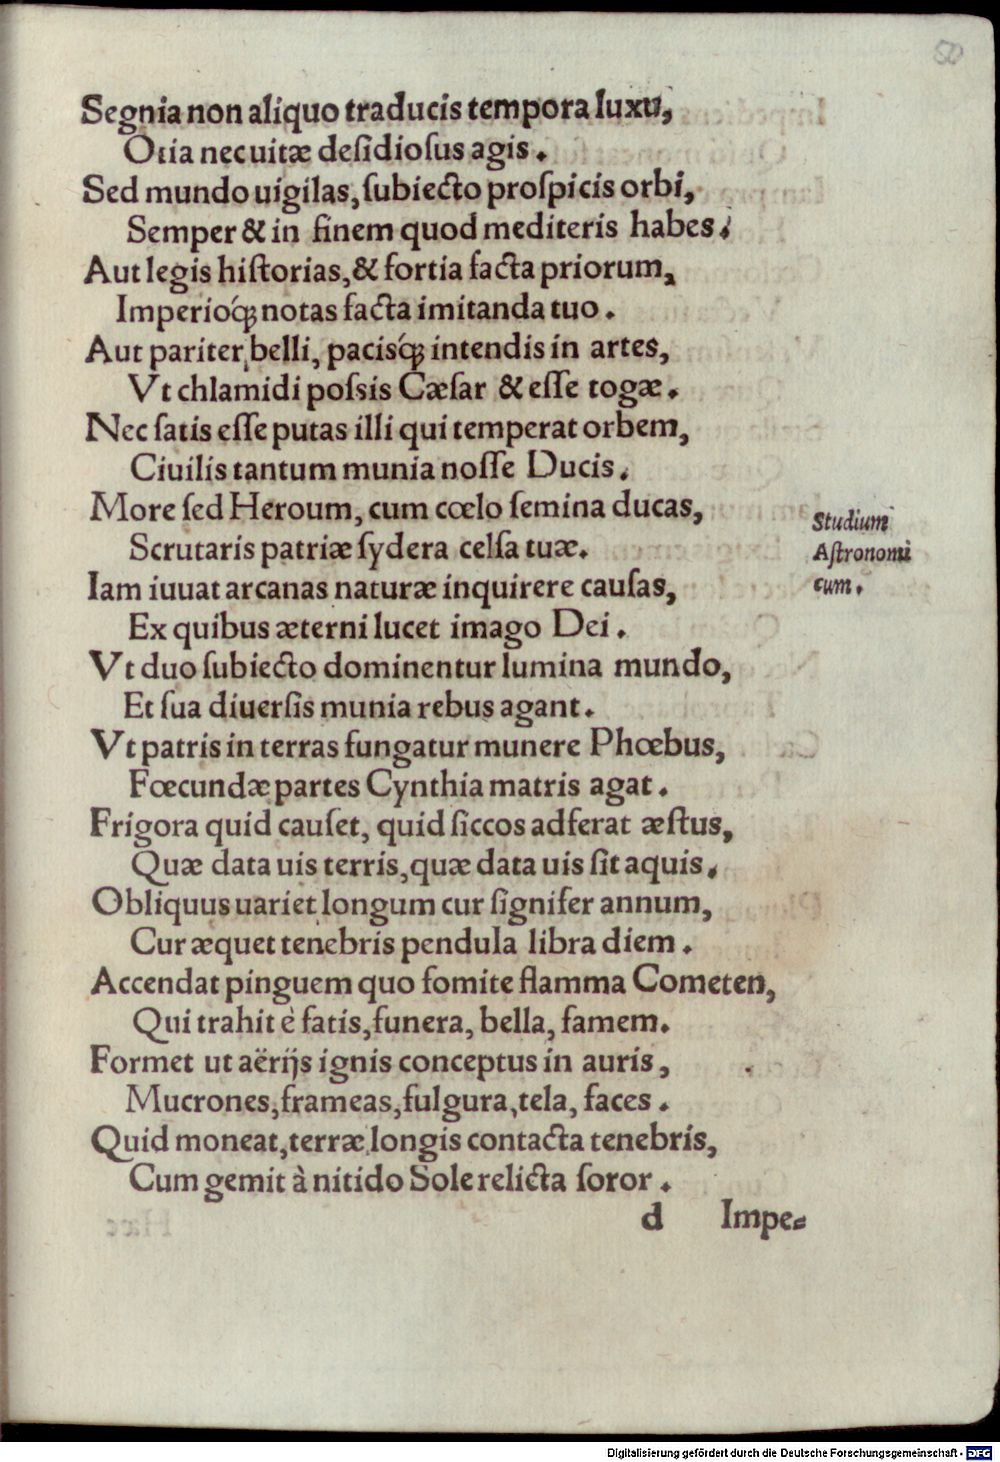 50
Segnia non aliquo traducis tempora luxu,
Otia nec uitæ desidiosus agis.
Sed mundo uigilas, subiecto prospicis orbi,
Semper & in finem quod mediteris habes.
Aut legis historias, & fortia facta priorum,
Imperioq́ꝫ notas facta imitanda tuo.
Aut pariter belli, pacisq́ꝫ intendis in artes,
Vt chlamidi possis Cæsar & esse togæ.
Nec satis esse putas illi qui temperat orbem,
Ciuilis tantum munia nosse Ducis.
More sed Heroum, cum cœlo semina ducas,
Scrutaris patriæ sydera celsa tuæ.
Studium
Astronomi
cum.
Iam iuuat arcanas naturæ inquirere causas,
Ex quibus æterni lucet imago Dei.
Vt duo subiecto dominentur lumina mundo,
Et sua diuersis munia rebus agant.
Vt patris in terras fungatur munere Phœbus,
Fœcundæ partes Cynthia matris agat.
Frigora quid causet, quid siccos adferat æstus,
Quæ data uis terris, quæ data uis sit aquis.
Obliquus uariet longum cur signifer annum,
Cur æquet tenebris pendula libra diem.
Accendat pinguem quo fomite flamma Cometen,
Qui trahit è fatis, funera, bella, famem.
Formet ut aërijs ignis conceptus in auris,
Mucrones, frameas, fulgura, tela, faces.
Quid moneat, terræ longis contacta tenebris,
Cum gemit à nitido Sole relicta soror.
d Impe-
Digitalisierung gefördert durch die Deutsche Forschungsgemeinschaft - DFG